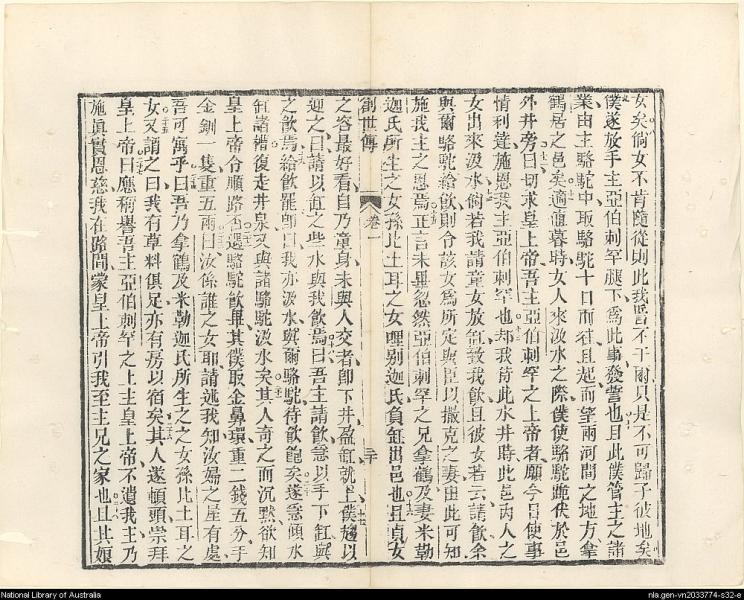 女矣倘女不肯隨從則此我誓不干爾只是不可歸子彼地矣
僕遂放手主亞伯刺罕腿下為此事發誓也且此僕管主之諸
業由主駱駝中取駱駝十口而往且起而望兩河間之地方拿
鶴居之邑矣適值暮時女人來汲水之際僕使駱駝跪伏於邑
外井旁曰切求皇上帝吾主亞伯刺罕之上帝者願今日使事
情利達施恩我主亞伯刺罕也却我待此水井時此邑內人之
女出來汲水倘若我請童女放缸致我飲且彼女若云請飲余
與爾駱駝給飲則令該女為所定與臣以撒克之妻由此可知
施我主之恩焉正言未畢忽然亞伯刺罕之兄拿鶴及妻米勒
迦氏所生之女孫比土耳之女哩別迦氏負缸出邑也且貞女
創世傳
卷一
三十
之容最好看自乃童身未與人交者即下井盈缸就上僕趨以
迎之曰請以缸之些水與我飲焉曰吾主請飲急以手下缸與
之飲焉給飲罷即曰我亦汲水與爾駱駝待飲飽矣遂急傾水
缸諸槽復走井泉又與諸駱駝汲水矣其人奇之而沉默欲知
皇上帝令順路否還駱駝飲畢其僕取金鼻環重二錢五分手
金釧一隻重五兩曰汝係誰之女耶請述我知汝父之屋有處
吾可寓乎曰吾乃拿鶴及米勒迦氏所生之之女孫比土耳之
女又謂之曰我有草料俱足亦有房以宿矣其人遂頓頭崇拜
皇上帝曰應稱譽吾主亞伯刺罕之上主皇上帝不遺我主乃
施真實恩慈我在路間蒙皇上帝引我至主兄之家也且其娘
National Library of Australia
nla.gen-vn2033774-s32-e